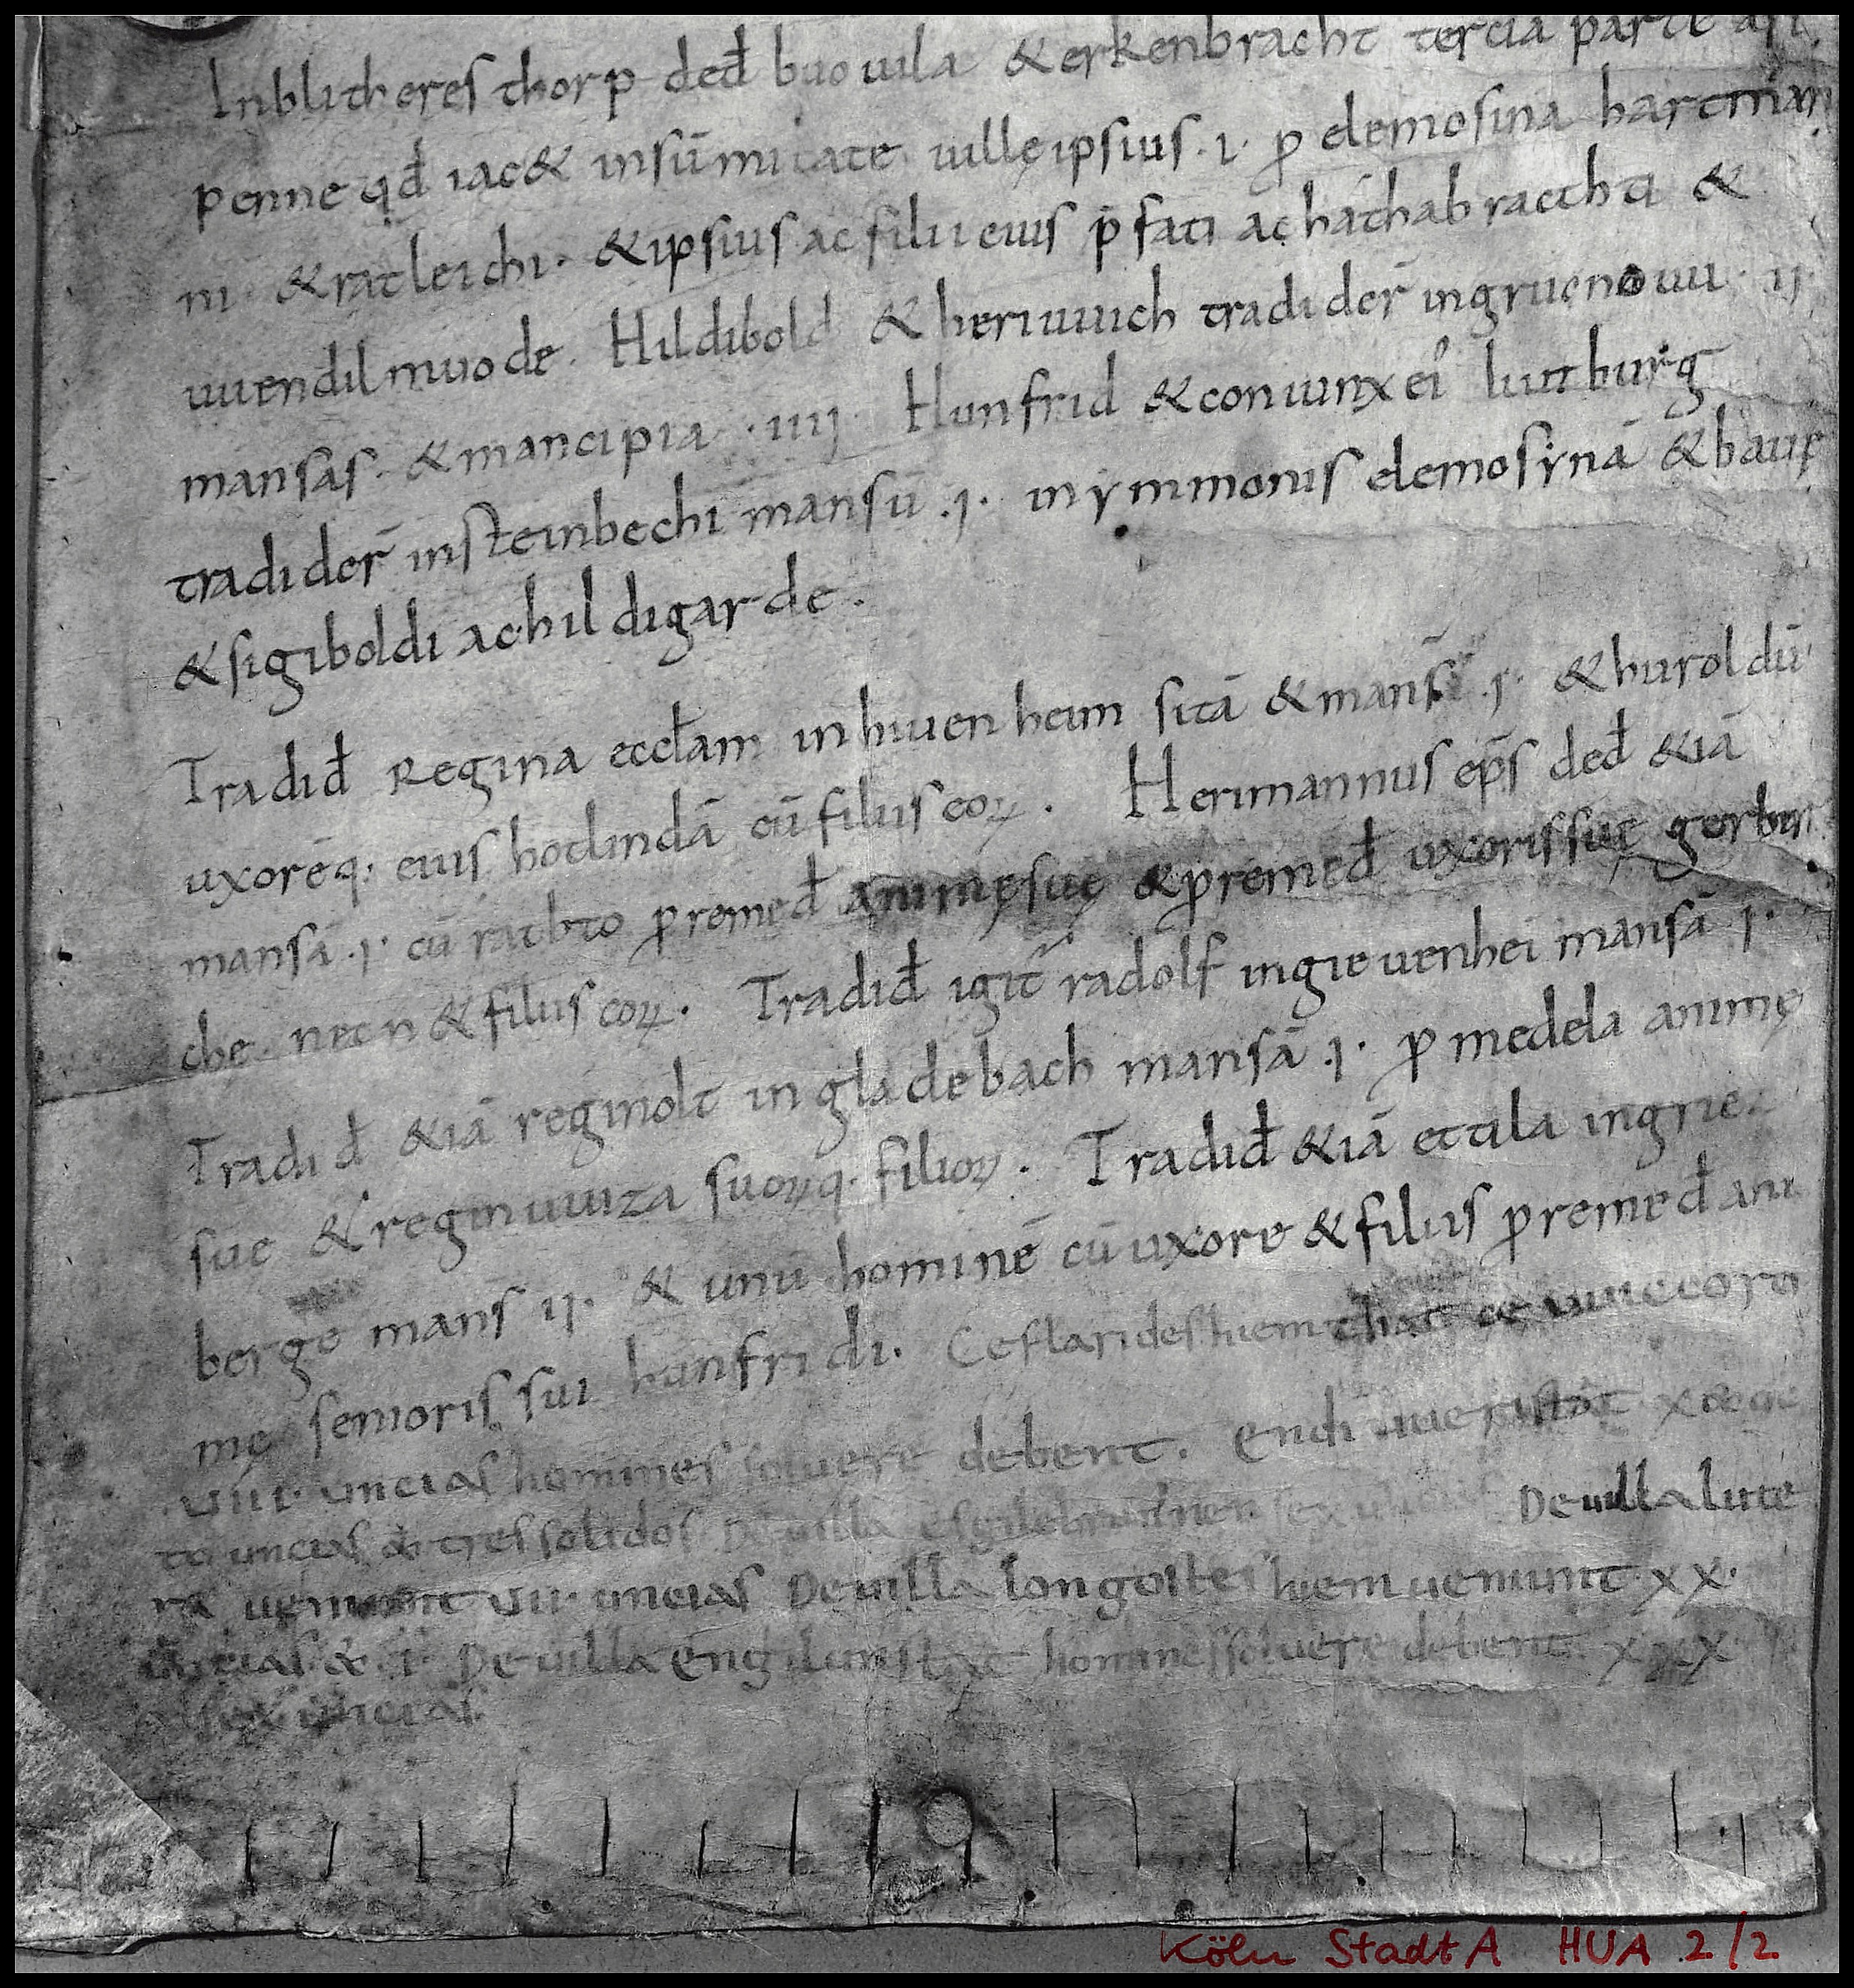 Inblitheres thorp ded̄ buouila & erkenbracht tercia parte
penne qd̄ iac& insūmitate uillę ipsius · i · ꝓ elemosina hartman
ni · & ratleichi · & ipsius ac filii eius p̄fati ac hathabracthti &
uuendilmuode · Hildibold & heriuuich tradider̄ in gruonouu · ij ·
mansas · & mancipia · iiij · Hunfrid & coniunx ei᾽ liutburg
tradider̄ in steinbechi mansū · j · in ymmonis elemosynā &
& sigiboldi ac hildigarde ·
Tradid̄ Regina eccl̄am in hiuenheim sitā & mans̄ · j · & huroldū
uxorēq · eius hodindā cū filiis eoꝝ · Herimannus ep̄s ded̄ & iā
mansā · j · cū ratbto ꝓ remed̄ animę suę & ꝓ remed̄ uxoris suę gerbir
che · necn & filiis eoꝝ · Tradid̄ igit᾽ radolf in gieuenhei mansā j ·
Tradid̄ & iā reginolt in gladebach mansā · j · ꝓ medela animę
suę & reginuuiza suoꝝq · filioꝝ · Tradid̄ & iā ettila in grie
bergo mans̄ ij · & unū hominē cū uxore & filiis ꝓ remed̄ ani
mę senioris sui hunfridi ·
· VIII · uncias homines soluere debent ·
to uncias & tres solidos De uilla sex uncias De uilla lute
ra ueniunt VII · uncias De uilla ueniunt · XX ·
uncias & · I · De uilla homines soluere debent · XXX ·
sex uncias
Köln StadtA HUA 2/2